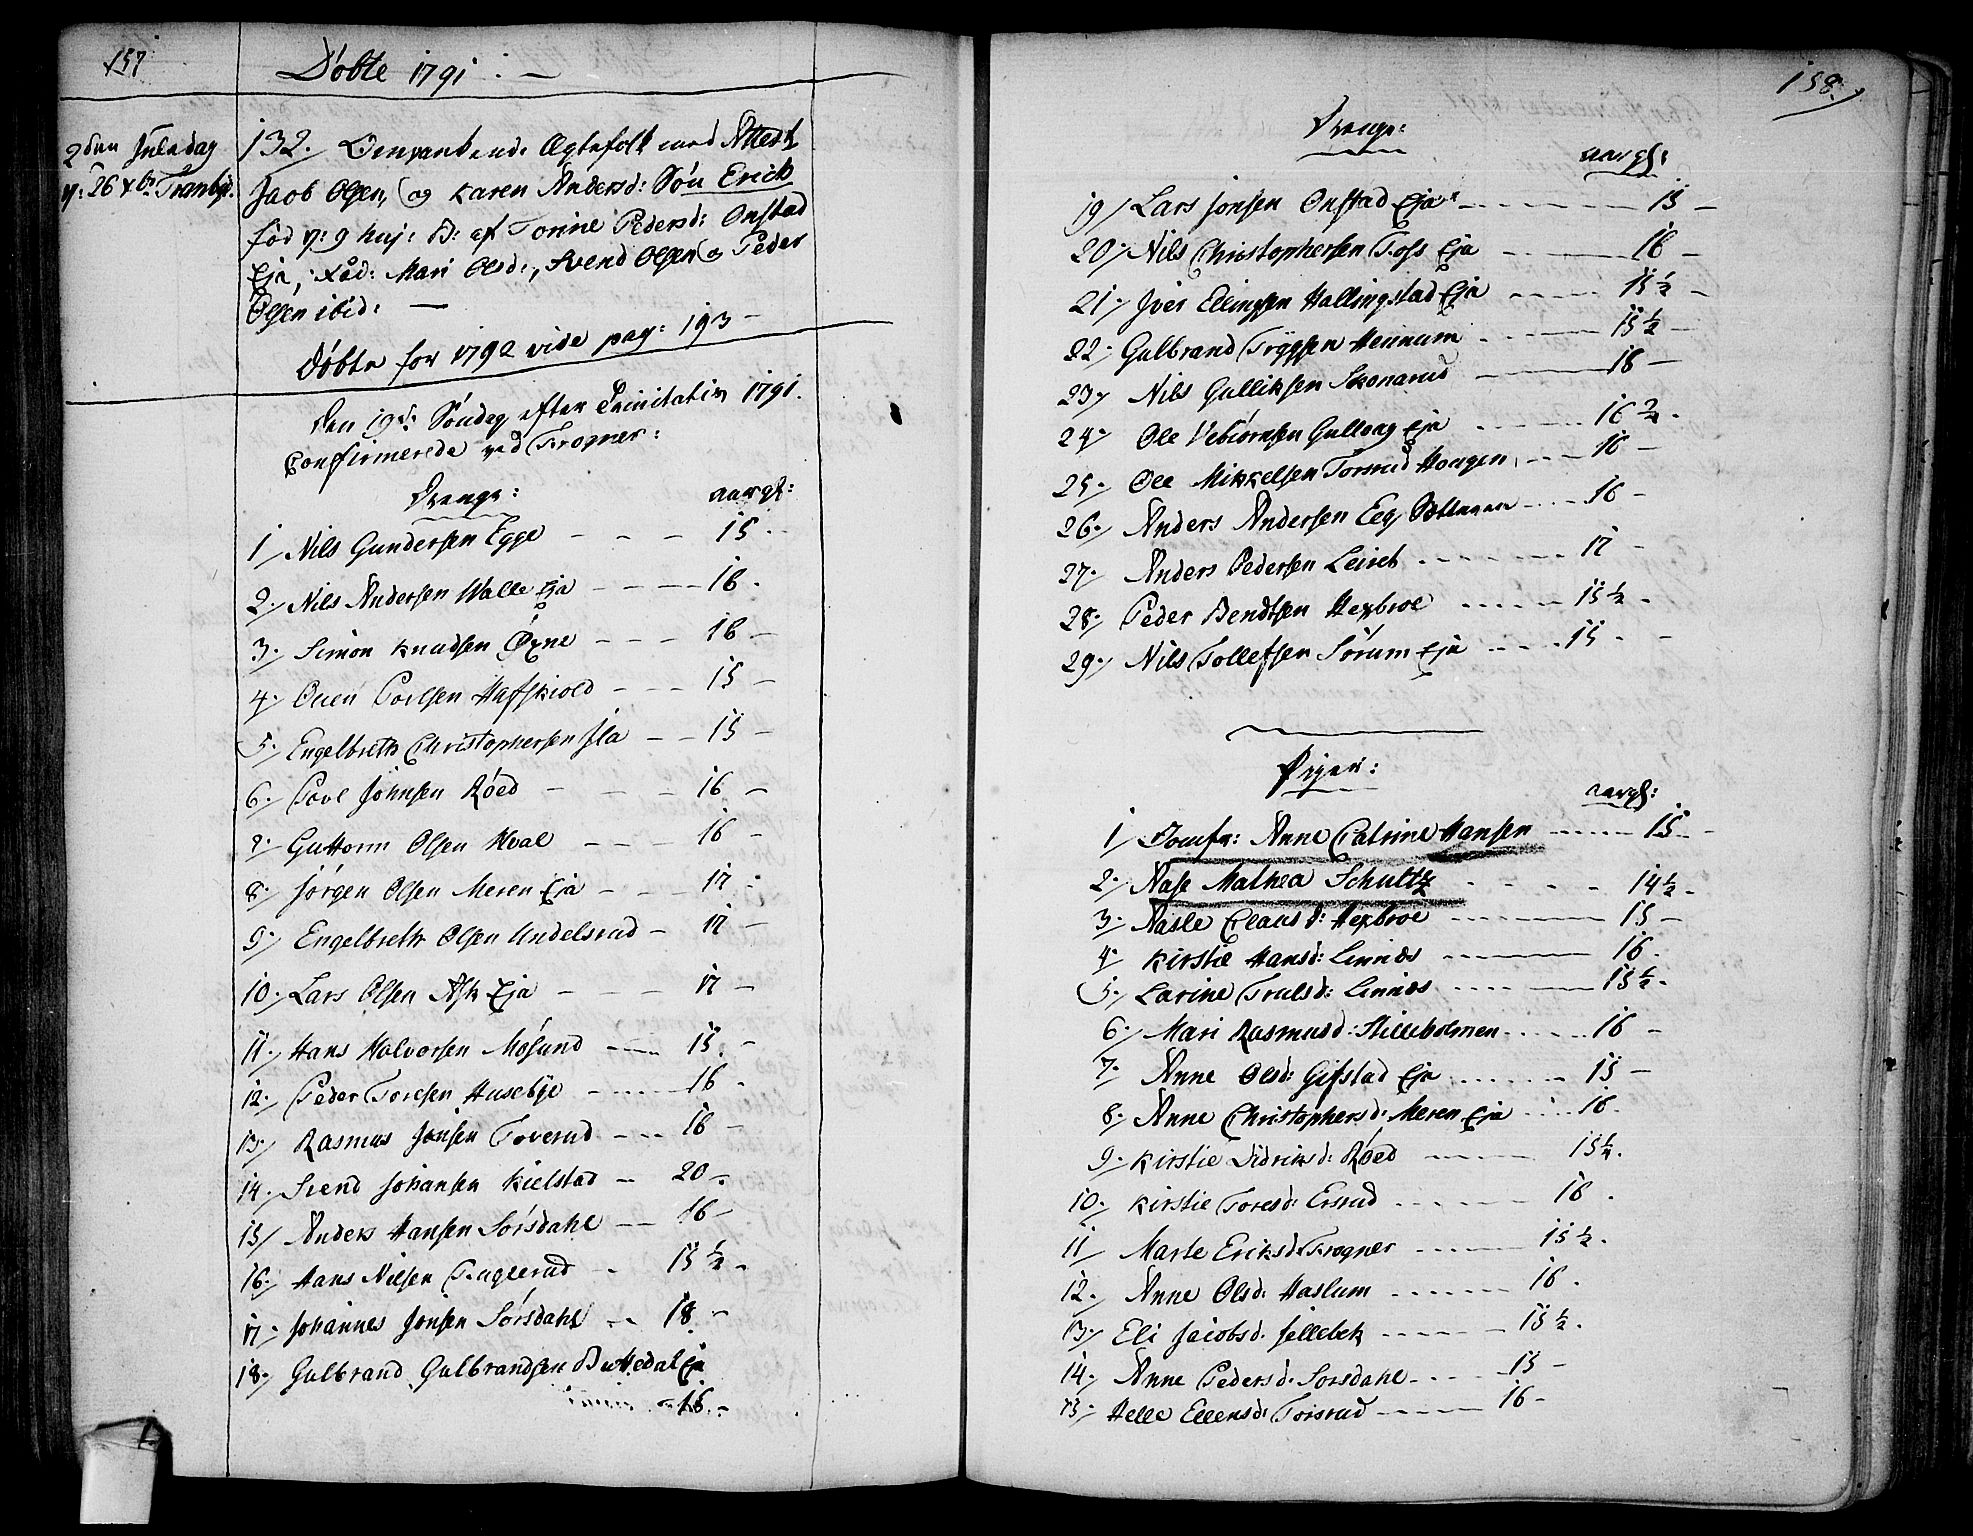 157
Døbte 1791. —
2den Juledag
d: 26 xbr Tranbye.
132. Omvankend: Ægtefolk med Attest
Jacob Olsen, og Karen Andersd: Søn Erick
fød d: 9 huj: B: af Torine Pedersd: Onstad
Eja, Fad: Mari Olsd:, Svend Olsen og Peder
Olsen ibid: —
Døbte for 1792 vide pag: 193 —
Den 19de Søndag efter Trinitatis 1791.
Confirmerede ved Frogner:
Drenge: aargl:
1/ Nils Gundersen Egge - - - 15 -
2/ Nils Andersen Walle Eja - - - 16 -
3/ Simon Knudsen Øxne - - - 16 -
4/ Povelsen Hafskiold - - - 15 -
5/ Engelbreth Christophersen Jla - - 15 -
6/ Povl Johnsen Røed - - - 16 -
7/ Guttorm Olsen Hval - - - 16 -
8/ Jørgen Olsen Meren Eja - - - 17 -
9/ Engelbreth Olsen Undelsrud - 17 -
10/ Lars Olsen Ask Eja - - - 17 -
11/ Hans Halvorsen Møsund - - - 15 -
12/ Peder Toresen Husebye - - - 16 -
13/ Rasmus Jonsen Toverud - - - 16 -
14/ Svend Johansen Kielstad - 20 -
15/ Anders Hansen Sørsdahl - - 16 -
16/ Hans Nilsen Fuglerud - 15 ½ -
17/ Johannes Jonsen Sørsdahl - - 18 -
18/ Gulbrand Gulbrandsen Buttedal Eja
16 -
158
Drenge:
aargl:
19/ Lars Jonsen Onstad Eja - - - 15 -
20/ Nils Christophersen Foss Eja - - - 16 -
21/ Jver Ellingsen Hallingstad Eja - - - 15 ½ -
22/ Gulbrand Trygsen Hennum - - - 15 ½ -
23/ Nils Gulliksen Skonarud - - - 18 -
24/ Ole Vebiørnsen Gullaug Eja - - - 16
25/ Ole Mikkelsen Torsrud Haugen - - - 16 -
26/ Anders Andersen Eeg - - - 16 -
27/ Anders Pedersen Leiret - - - 17 -
28/ Peder Bendtsen Hexbroe - - - 15 ½ -
29/ Nils Tollefsen Sørum Eja - - - 15 -
Piger:
aargl:
1/ Jomfr: Anne Catrine Hansen - - - 15 -
2/ Aase Mathea Schultz - - - 14 ½ -
3/ Aasle Clausd: Hexbroe - - - 15 -
4/ Kirstie Hansd: Linnes - - - 16 -
5/ Larine Trulsd: Linnes - - - 15 ½ -
6/ Mari Rasmusd: Hilleholmen - - - 16 -
7/ Anne Olsd: Gifstad Eja - - - 15 -
8/ Anne Christophersd: Meren Eja - - - 16 -
9/ Kirstie Didriksd: Røed - - - 15 ½ -
10/ Kirstie Toresd: Ersrud - - - 16 -
11/ Marte Eriksd: Frogner - - - 15 ½ -
12/ Anne Olsd: Haslum - - - 16 -
13/ Eli Jacobsd: Jellebek - - - 15 ½ -
14/ Anne Pedersd: Sørsdahl - - - 15 -
15/ Helle Ellensd: Torsrud - - - 16 -